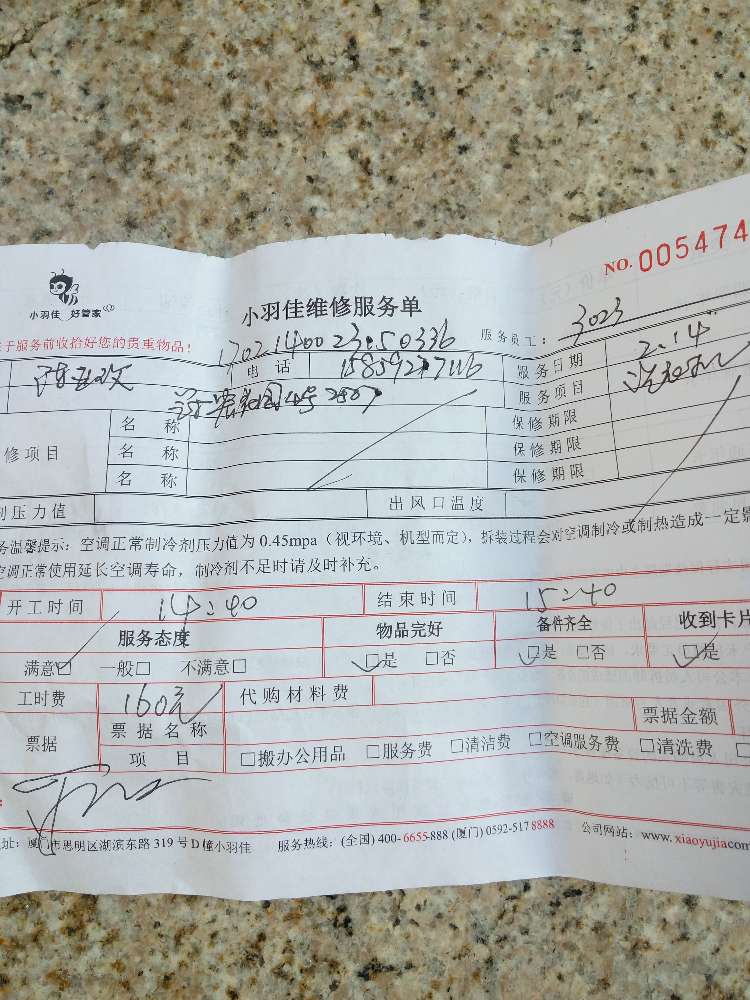 NO. 005474
小羽佳 好管家
小羽佳维修服务单
于服务前收拾好您的贵重物品!
1702140023.50336
服务员工: 3023
电 话
服务日期 2.14
服务项目
4号
名 称 保修期限
修项目 名 称 保修期限
名 称 保修期限
压力值 出风口温度
务温馨提示: 空调正常制冷剂压力值为0.45mpa(视环境、机型而定),拆装过程会对空调制冷或制热造成一定影
空调正常使用延长空调寿命,制冷剂不足时请及时补充。
开工时间 14:40 结束时间 15:40
服务态度 物品完好 备件齐全 收到卡片
满意□ 一般□ 不满意□ □是 □否 □是 □否 □是
工时费 160元 代购材料费
票据 票据名称 票据金额
项 目 □搬办公用品 □服务费 □清洁费 □空调服务费 □清洗费
址: 厦门市思明区湖滨东路319号D幢小羽佳 服务热线: (全国) 400-6655-888 (厦门) 0592-5178888 公司网站: www.xiaoyujia.com